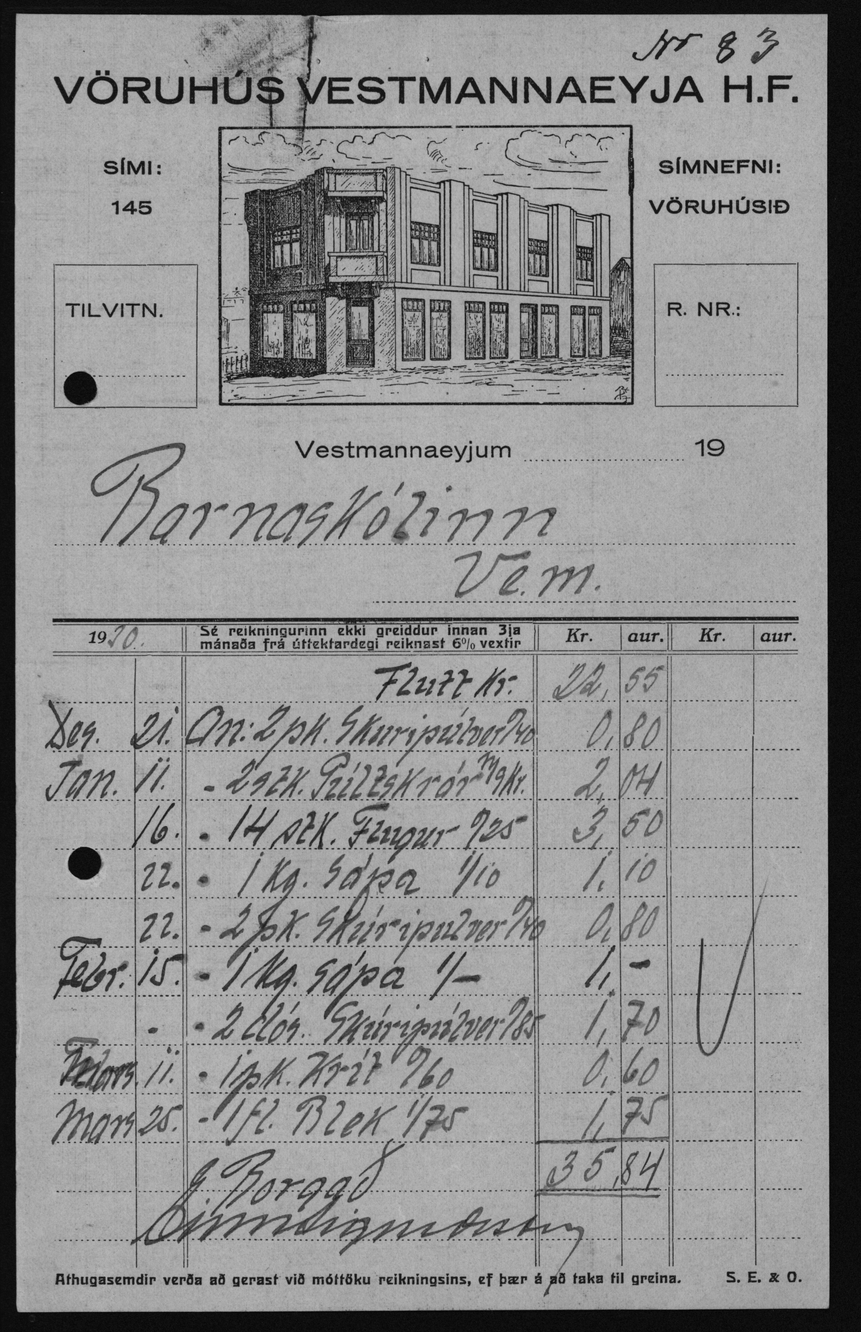 Nr 83
VÖRUHÚS VESTMANNAEYJA H.F.
SÍMI:
145
SÍMNEFNI:
VÖRUHÚSIÐ
TILVITN.
R. NR.:
Vestmannaeyjum 19
Barnaskólinn
Ve.m.
1930. Sé reikningurinn ekki greiddur innan 3ja mánaða frá úttektardegi reiknast 6% vextir Kr. aur. Kr. aur.
Flutt Kr. 22,55
Des. 21. An: 2 pk. Skuripúlver 0/40 0,80
Jan. 11. - 2 stk. Púltskrár Kr. 2,04
16. - 14 stk. 0/25 3,50
22. - 1 Kg. Sápa 1/10 1,10
22. - 2 pk. Skúripulver 0/40 0,80
Febr. 15. - 1 Kg. Sápa 1/- 1,-
- - 2 dós. Skúripúlver 0/85 1,70
Mars. 11. - 1 pk. Krít 0/60 0,60
Mars 25. - 1 fl. Blek 1/75 1,75
35,84
Borgað
Athugasemdir verða að gerast við móttöku reikningsins, ef þær á að taka til greina. S. E. & O.